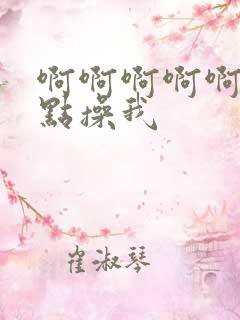 啊啊啊啊啊
點操我
崔淑琴